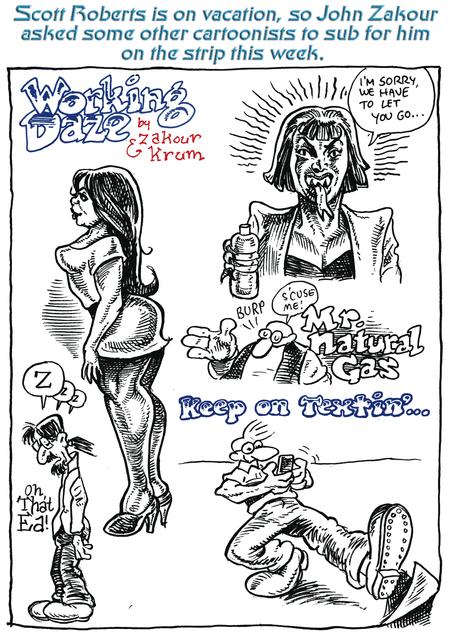 Scott Roberts is on vacation, so John Zakour
asked some other cartoonists to sub for him
on the strip this week.
Working
Daze
by
Zakour
& Krum
I'M SORRY,
WE HAVE
TO LET
YOU GO...
BURP
S'CUSE
ME!
Mr.
Natural
Gas
Keep on Textin'...
Z
Z
Z
Oh,
That
Ed!